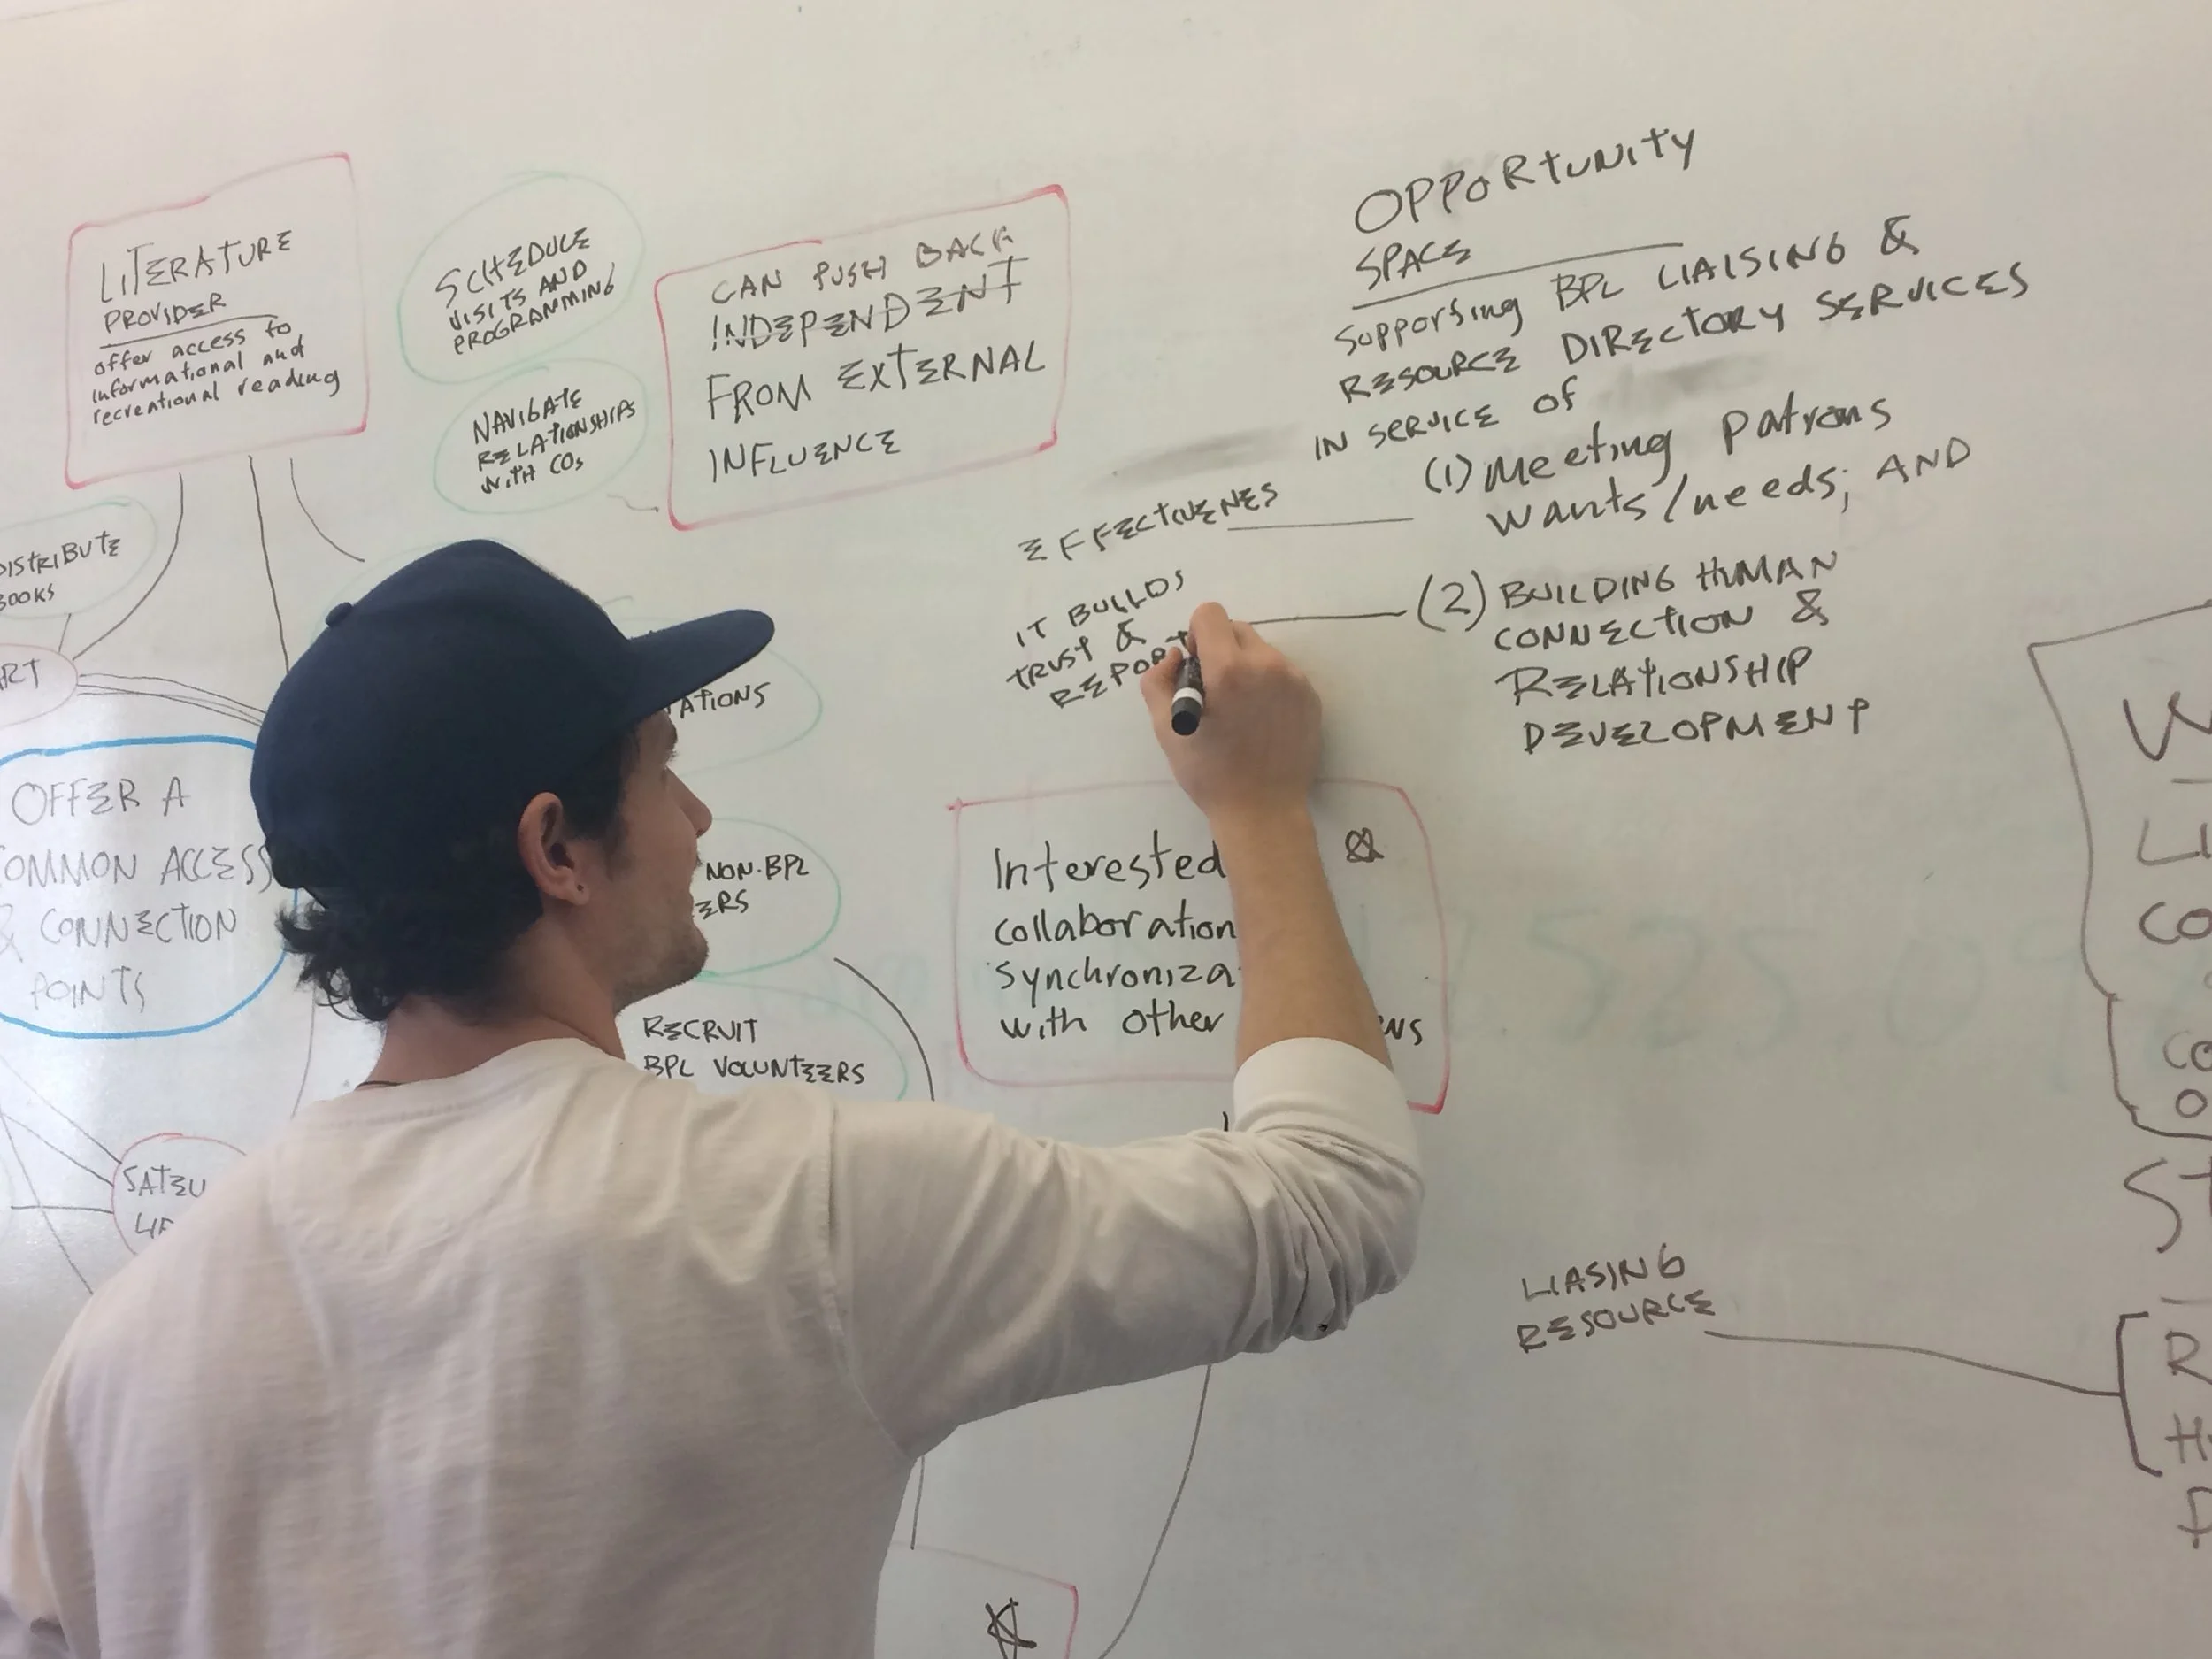 LITERATURE
PROVIDER
offer access to
informational and
recreational reading
SCHEDULE
VISITS AND
PROGRAMMING
NAVIGATE
RELATIONSHIPS
WITH COs
CAN PUSH BACK
INDEPENDENT
FROM EXTERNAL
INFLUENCE
OPPORTUNITY
SPACE
Supporting BPL LIAISING &
RESOURCE DIRECTORY SERVICES
IN SERVICE OF
(1) Meeting Patrons
wants/needs; AND
(2) BUILDING HUMAN
CONNECTION &
RELATIONSHIP
DEVELOPMENT
EFFECTIVENES
IT BUILDS
TRUST &
REPORT
DISTRIBUTE
BOOKS
ART
OFFER A
COMMON ACCESS
& CONNECTION
POINTS
ATIONS
NON-BPL
ERS
RECRUIT
BPL VOLUNTEERS
Interested &
collaboration
synchroniza
with other
LIASING
RESOURCE